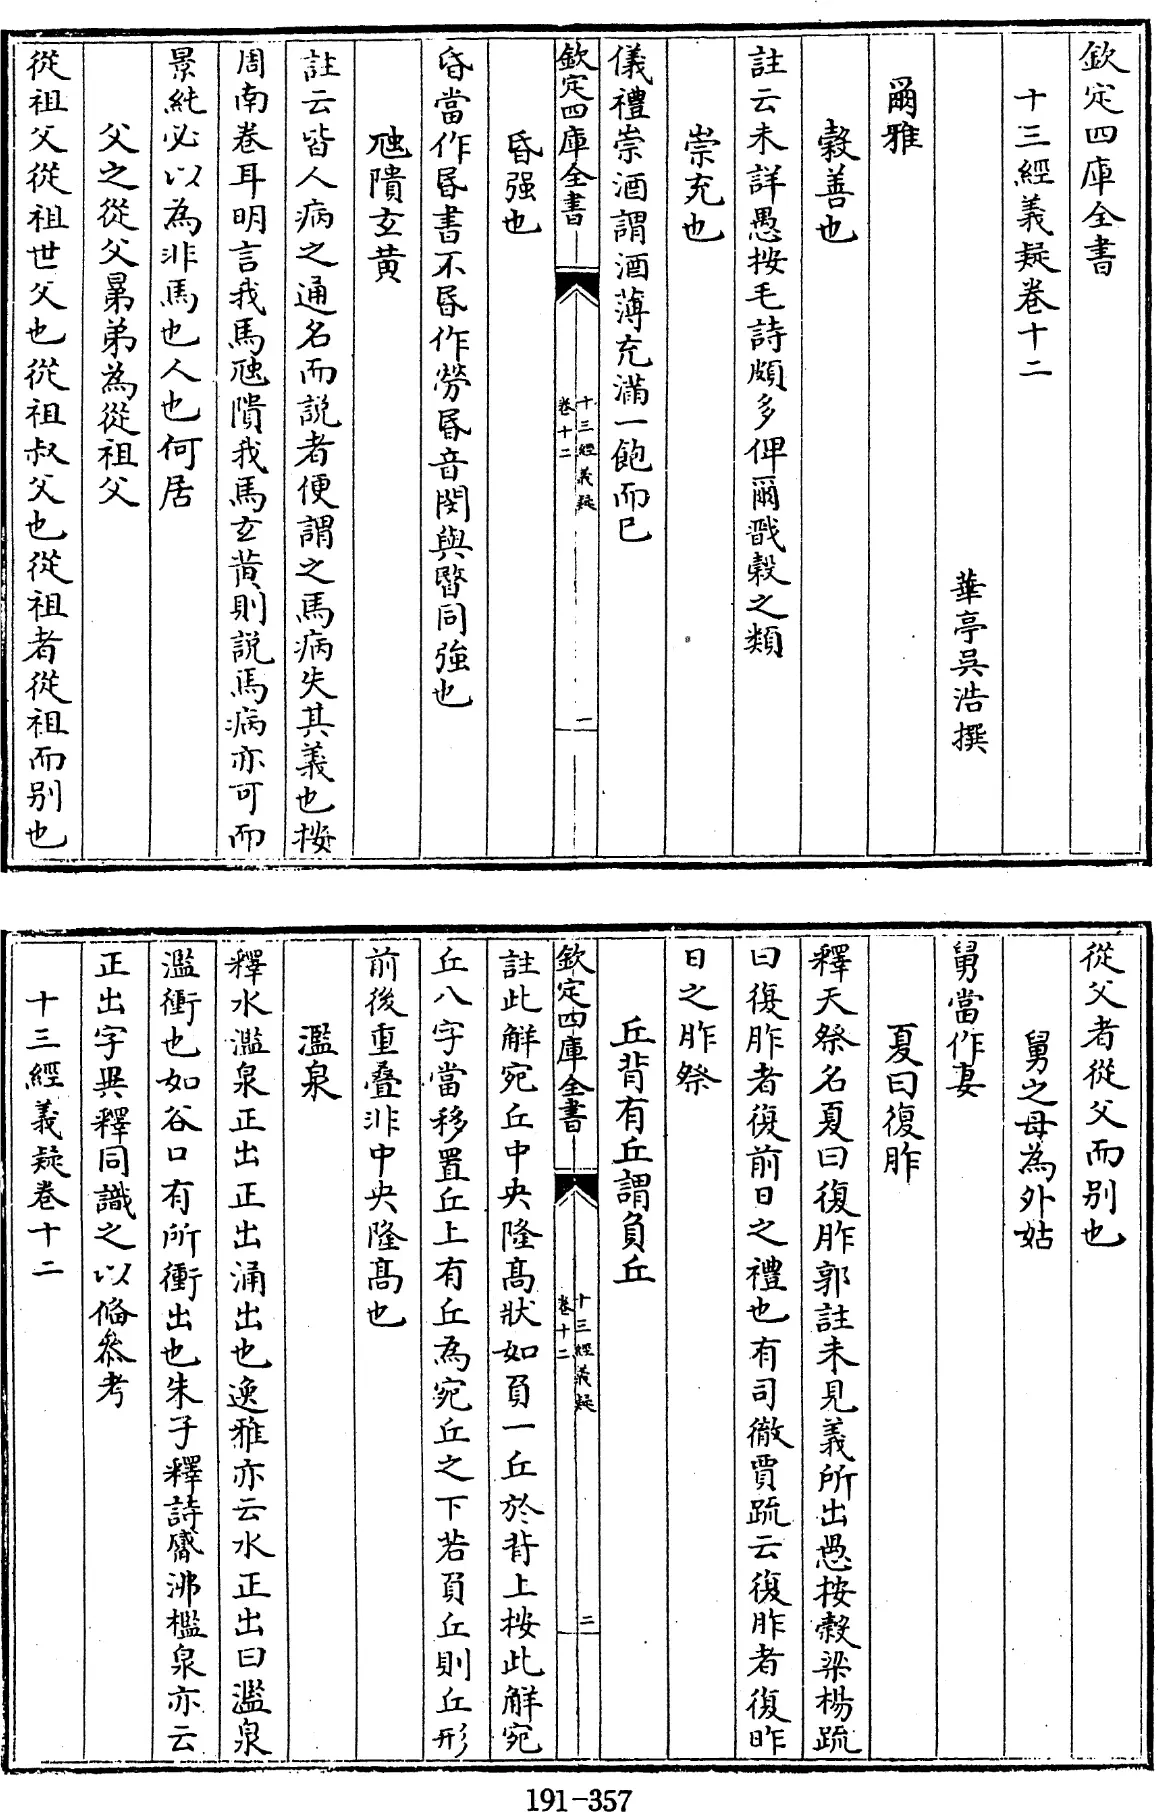 欽定四庫全書
十三經義疑卷十二
華亭吳浩撰
爾雅
穀善也
註云未詳愚按毛詩頗多俾爾戩穀之類
崇充也
儀禮崇酒謂酒薄充滿一飽而已
欽定四庫全書
十三經義疑
卷十二
一
昏强也
昏當作昬書不昬作勞昬音閔與暋同強也
虺隤玄黄
註云皆人病之通名而説者便謂之馬病失其義也按
周南卷耳明言我馬虺隤我馬玄黄則説馬病亦可而
景純必以為非馬也人也何居
父之從父晜弟為從祖父
從祖父從祖世父也從祖叔父也從祖者從祖而别也
從父者從父而别也
舅之母為外姑
舅當作妻
夏曰復胙
釋天祭名夏曰復胙郭註未見義所出愚按穀梁楊疏
曰復胙者復前日之禮也有司徹賈疏云復胙者復昨
日之胙祭
丘背有丘謂負丘
欽定四庫全書
十三經義疑
卷十二
二
註此解宛丘中央隆髙狀如負一丘於背上按此解宛
丘八字當移置丘上有丘為宛丘之下若負丘則丘形
前後重疊非中央隆髙也
濫泉
釋水濫泉正出正出涌出也逸雅亦云水正出曰濫泉
濫衝也如谷口有所衝出也朱子釋詩觱沸檻泉亦云
正出字異釋同識之以俻叅考
十三經義疑卷十二
191-357